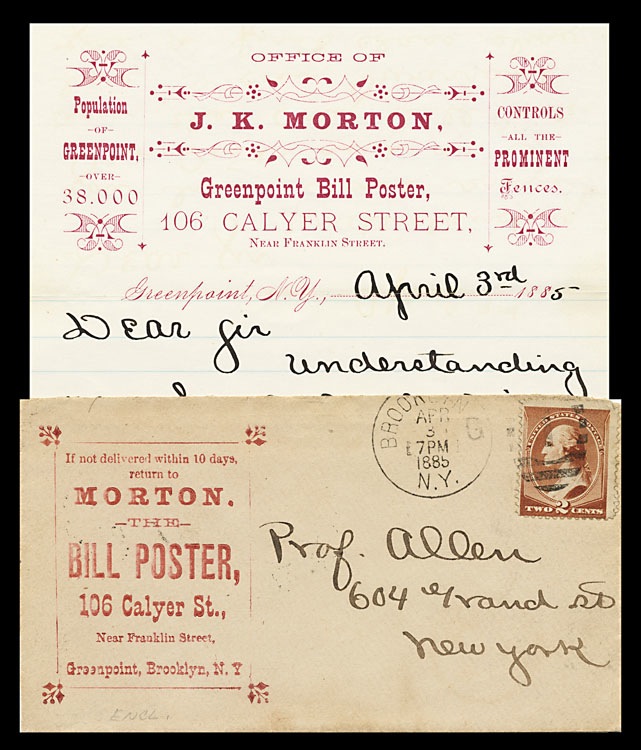 OFFICE OF
J. K. MORTON,
Greenpoint Bill Poster,
106 CALYER STREET,
NEAR FRANKLIN STREET.
Population
-OF-
GREENPOINT,
-OVER-
38.000
CONTROLS
-ALL THE-
PROMINENT
Fences.
Greenpoint, N.Y., April 3rd 1885
Dear Sir
understanding
If not delivered within 10 days,
return to
MORTON.
-THE-
BILL POSTER,
106 Calyer St.,
Near Franklin Street,
Greenpoint, Brooklyn, N. Y
ENCL.
APR
3
7PM
1885
N.Y.
UNITED STATES POSTAGE
TWO 2 CENTS
Prof. Allen
604 Grand st
New York